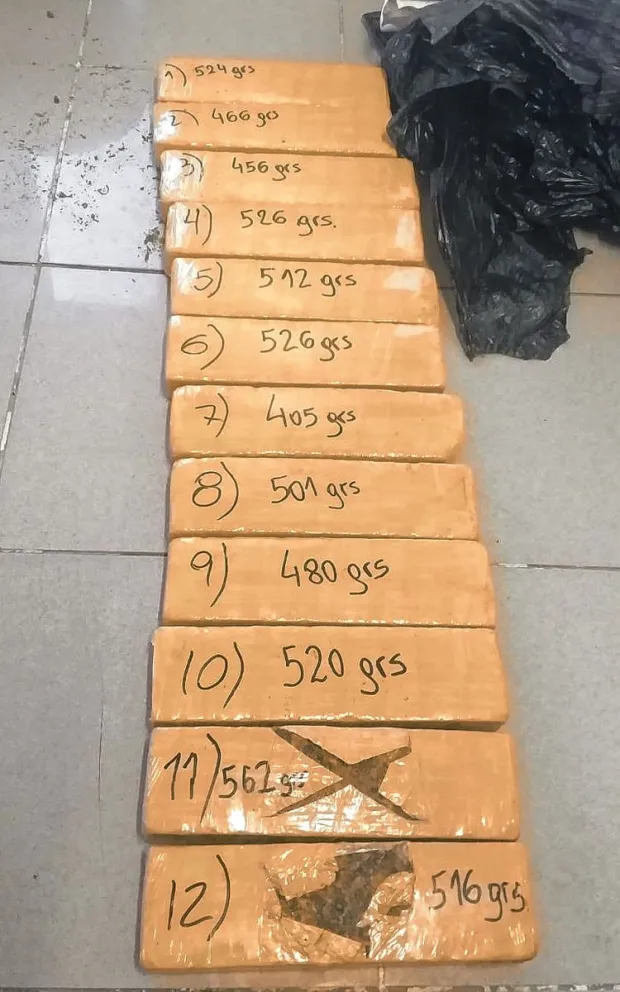 1) 524 grs
2) 466 grs
3) 456 grs
4) 526 grs.
5) 512 grs
6) 526 grs
7) 405 grs
8) 501 grs
9) 480 grs
10) 520 grs
11) 562 grs
12) 516 grs